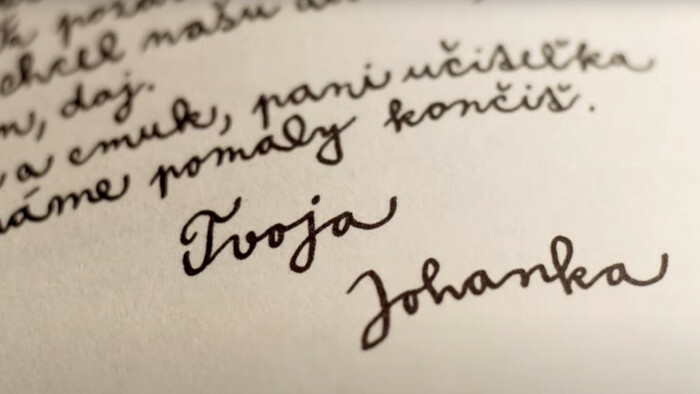 chcel našu
daj.
a cmuk, pani učiteľka
máme pomaly končiť.
Tvoja
Johanka